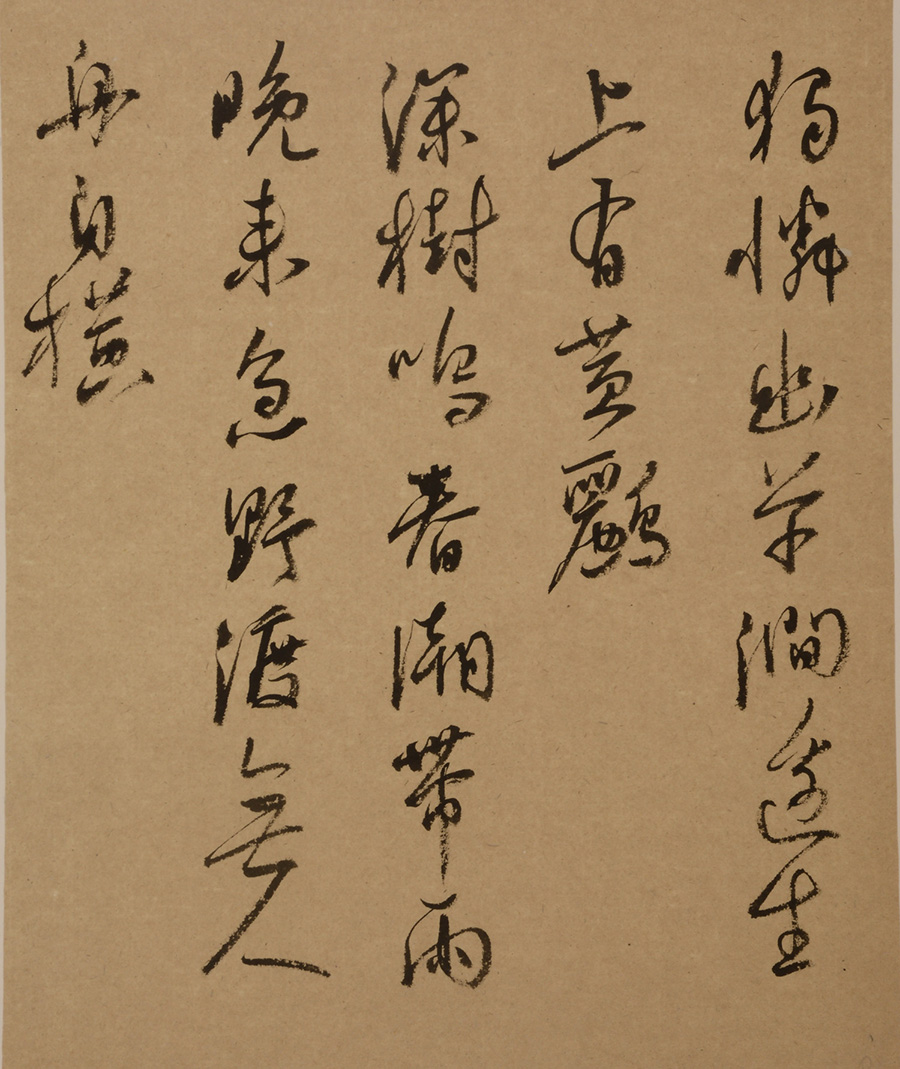 獨憐幽草澗邊生
上有黃鸝
深樹鳴春潮帶雨
晚来急野渡無人
舟自橫